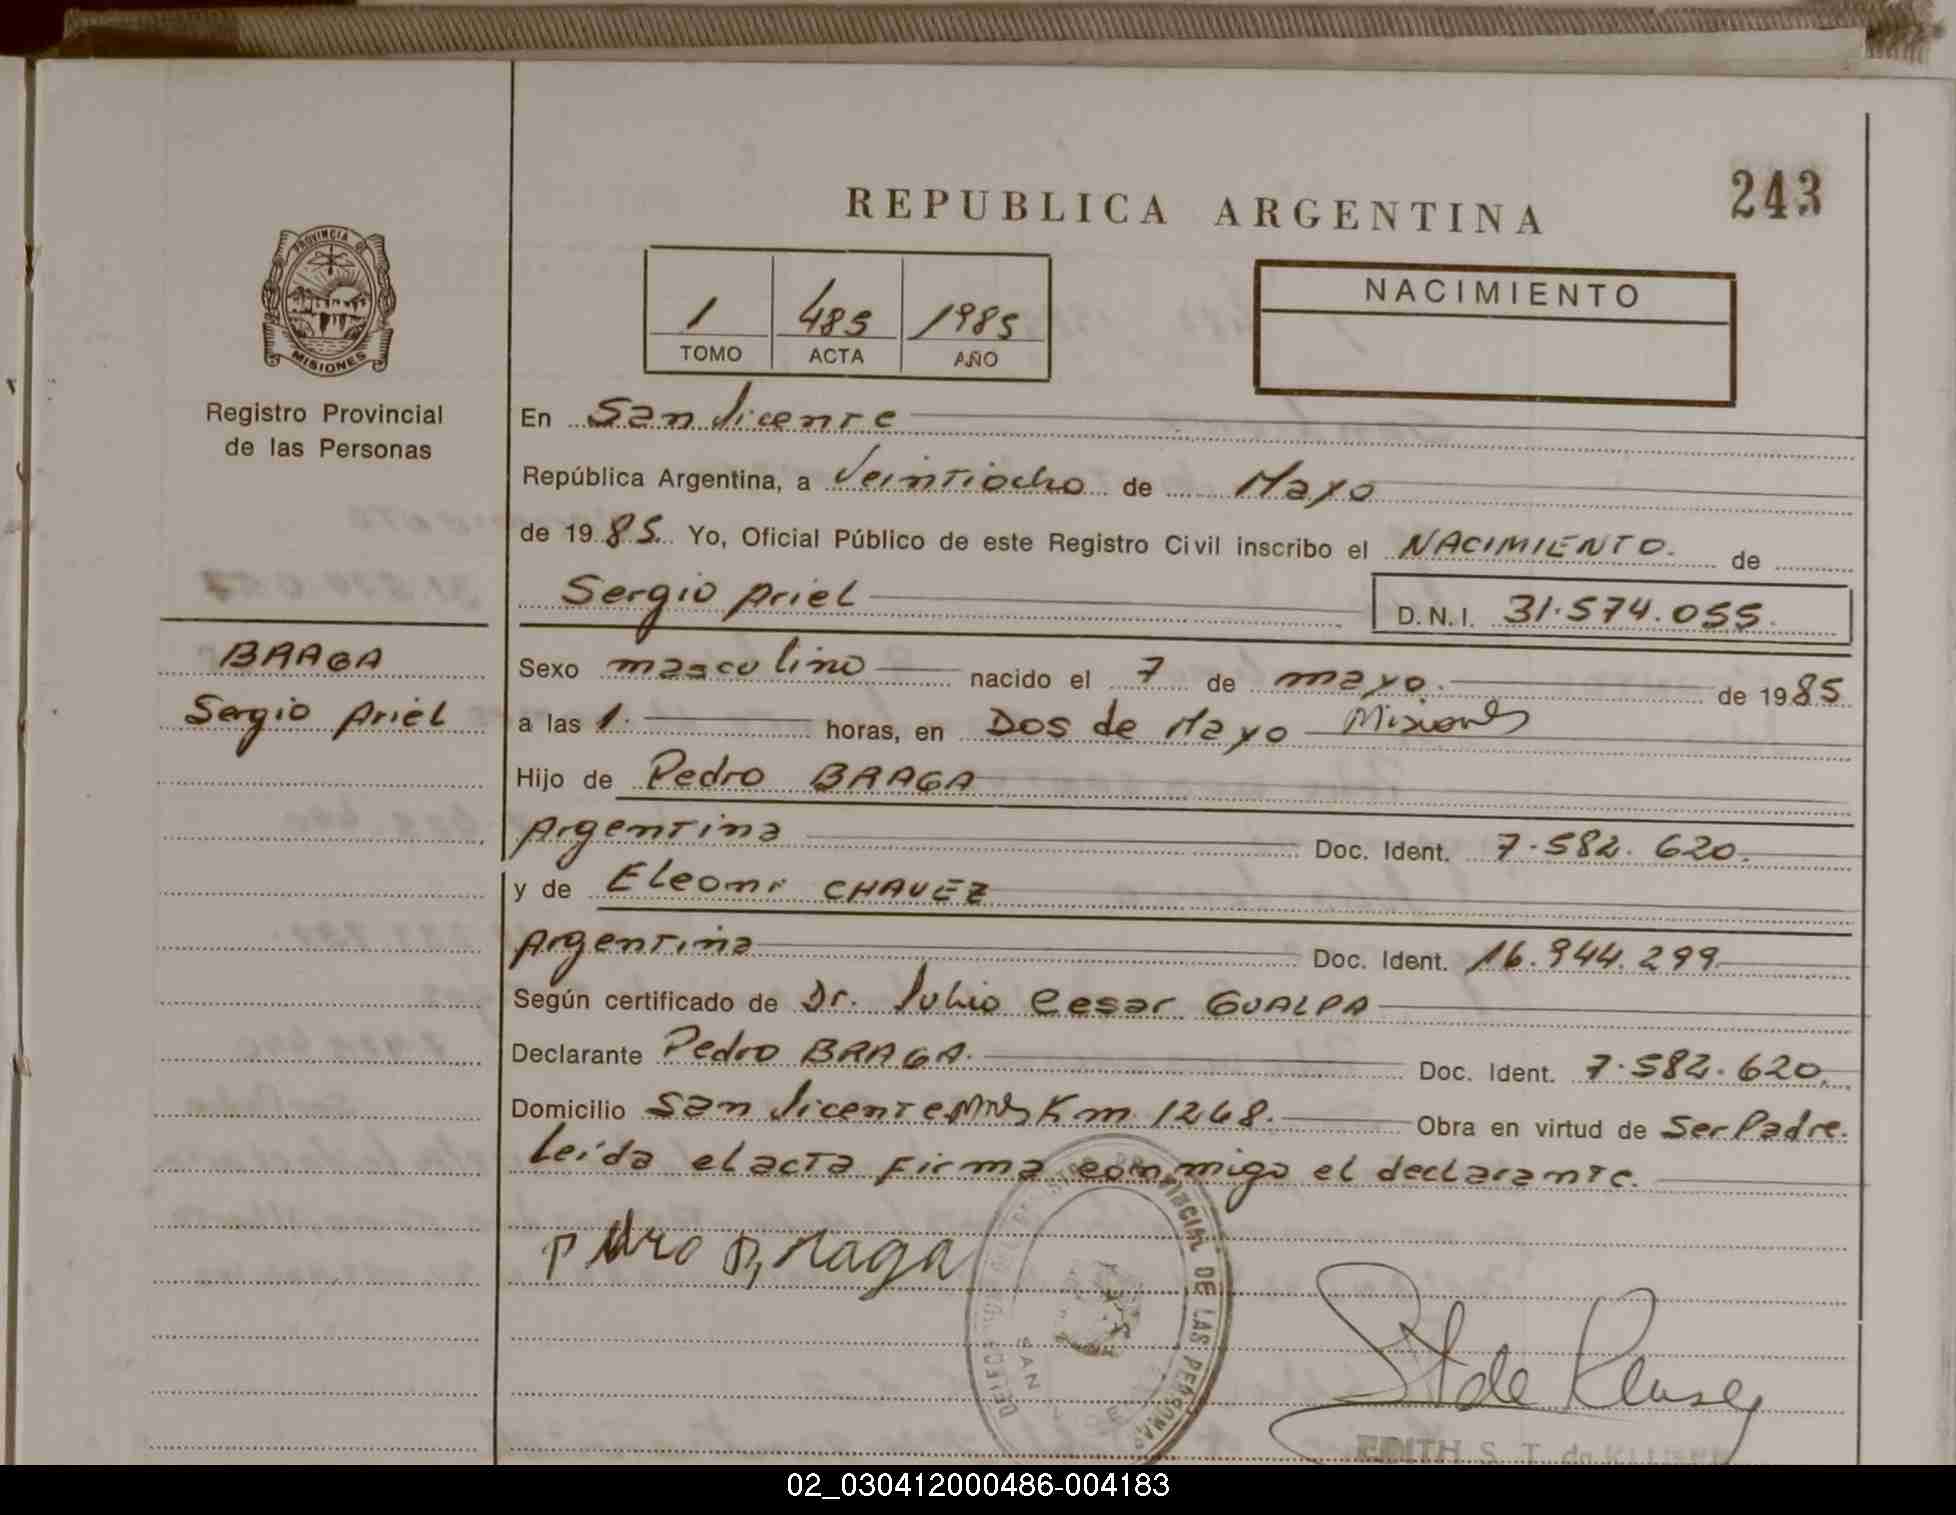 REPUBLICA ARGENTINA
243
PROVINCIA DE
MISIONES
Registro Provincial
de las Personas
1 485 1985
TOMO ACTA AÑO
NACIMIENTO
En San Vicente
República Argentina, a Veintiocho de Mayo
de 1985. Yo, Oficial Público de este Registro Civil inscribo el NACIMIENTO. de
Sergio Ariel D.N.I. 31.574.055.
BRAGA
Sergio Ariel
Sexo masculino nacido el 7 de mayo. de 1985
a las 1. horas, en Dos de Mayo Misiones
Hijo de Pedro BRAGA
Argentina Doc. Ident. 7.582.620.
y de Eleonir CHAVEZ
Argentina Doc. Ident. 16.944.299
Según certificado de Dr. Julio Cesar GUALPA
Declarante Pedro BRAGA. Doc. Ident. 7.582.620.
Domicilio San Vicente Mnes Km 1268. Obra en virtud de Ser Padre.
Leída el acta firma conmigo el declarante.
Pedro Braga
PROVINCIAL DE LAS PERSONAS
SAN
EDITH S. T. de
02_030412000486-004183